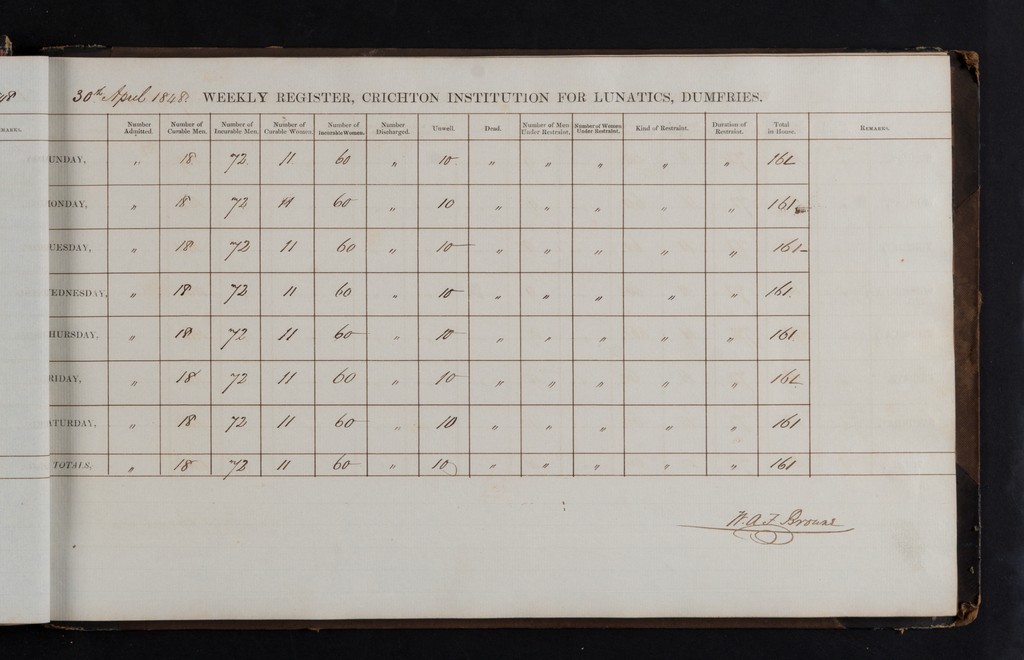 48
30th April 1848. WEEKLY REGISTER, CRICHTON INSTITUTION FOR LUNATICS, DUMFRIES.
EMARKS. Number Admitted. Number of Curable Men. Number of Incurable Men. Number of Curable Women. Number of Incurable Women. Number Discharged. Unwell. Dead. Number of Men Under Restraint. Number of Women Under Restraint. Kind of Restraint. Duration of Restraint. Total in House. REMARKS.
UNDAY, " 18 72 11 60 " 10 " " " " " 161
ONDAY, " 18 72 11 60 " 10 " " " " " 161
UESDAY, " 18 72 11 60 " 10 " " " " " 161
EDNESDAY, " 18 72 11 60 " 10 " " " " " 161.
HURSDAY, " 18 72 11 60 " 10 " " " " " 161
RIDAY, " 18 72 11 60 " 10 " " " " " 161
ATURDAY, " 18 72 11 60 " 10 " " " " " 161
TOTALS, " 18 72 11 60 " 10 " " " " " 161
W.A.F. Browne